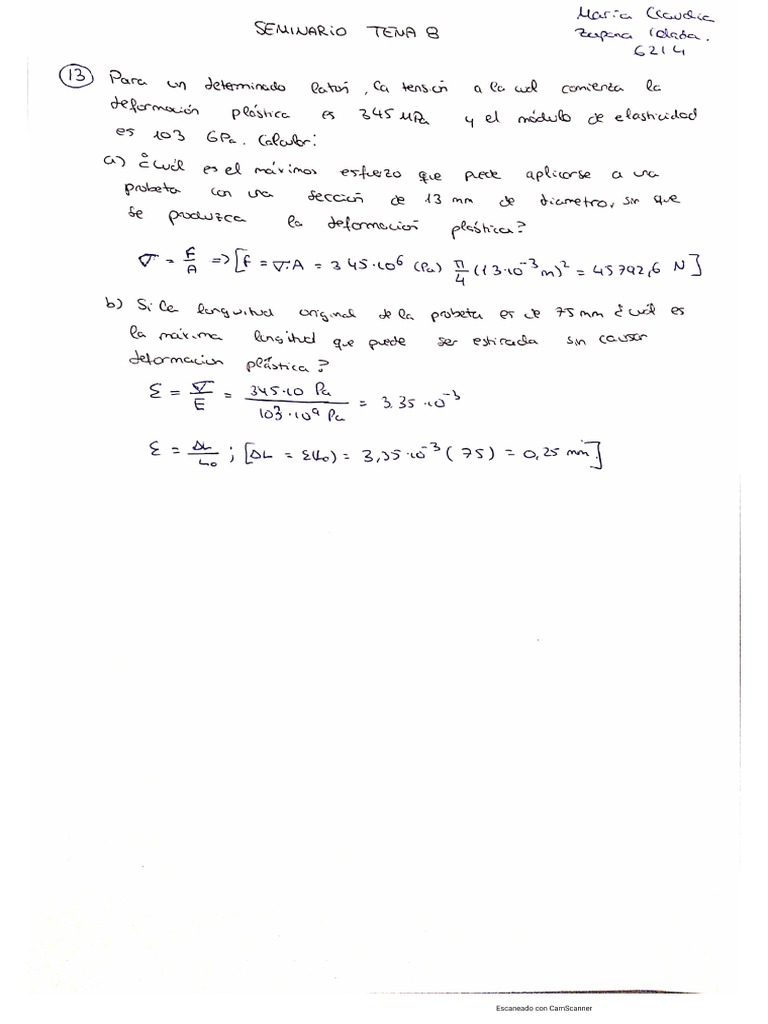 SEMINARIO TEMA 8
Maria Claudia
6214
13 Para un determinado latón, la tensión a la cual comienza la
deformación plástica es 345 MPa y el módulo de elasticidad
es 103 GPa. Calcular:
a) ¿Cuál es el máximos esfuerzo que puede aplicarse a una
probeta con una sección de 13 mm de diametro, sin que
se produzca la deformación plástica?
σ = F/A => [F = σ·A = 345·10⁶ (Pa) π/4 (13·10⁻³ m)² = 45792,6 N]
b) Si la longuitud original de la probeta es de 75 mm ¿cuál es
la máxima longitud que puede ser estirada sin causar
deformacion plástica?
Ɛ = σ/E = 345·10 Pa / 103·10⁹ Pa = 3.35·10⁻³
Ɛ = ΔL/L₀ ; [ΔL = Ɛ(L₀) = 3,35·10⁻³ (75) = 0,25 mm.]
Escaneado con CamScanner